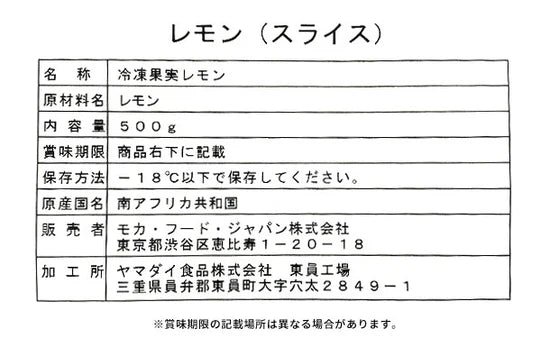 レモン（スライス）
名称 冷凍果実レモン
原材料名 レモン
内容量 ５００ｇ
賞味期限 商品右下に記載
保存方法 －１８℃以下で保存してください。
原産国名 南アフリカ共和国
販売者 モカ・フード・ジャパン株式会社
東京都渋谷区恵比寿１－２０－１８
加工所 ヤマダイ食品株式会社 東員工場
三重県員弁郡東員町大字穴太２８４９－１
※賞味期限の記載場所は異なる場合があります。